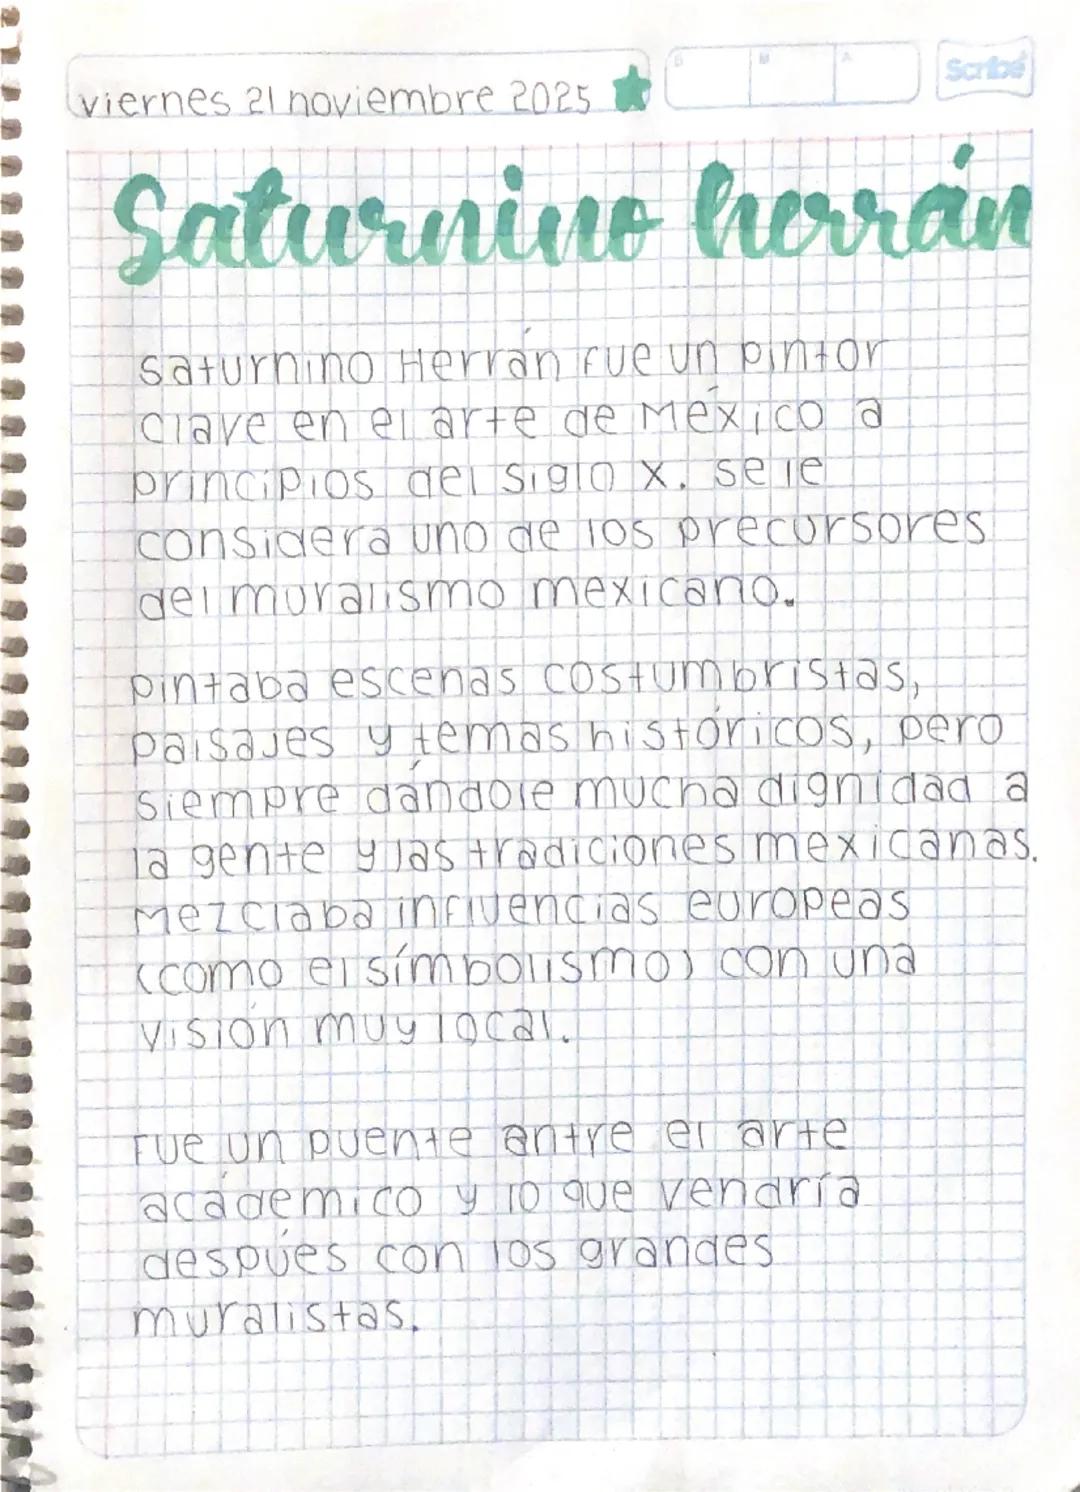 viernes 21 noviembre 2025
D M A
Scribe
Saturnino herrán
Saturnino Herrán fue un pintor
clave en el arte de México a
principios del siglo X. se le
considera uno de los precursores
del muralismo mexicano.
pintaba escenas costumbristas,
paisajes y temas históricos, pero
siempre dándole mucha dignidad a
la gente y las tradiciones mexicanas.
Mezclaba influencias europeas
(como el símbolismo) con una
visión muy local.
Fue un puente entre el arte
académico y lo que vendría
despúes con los grandes
muralistas.